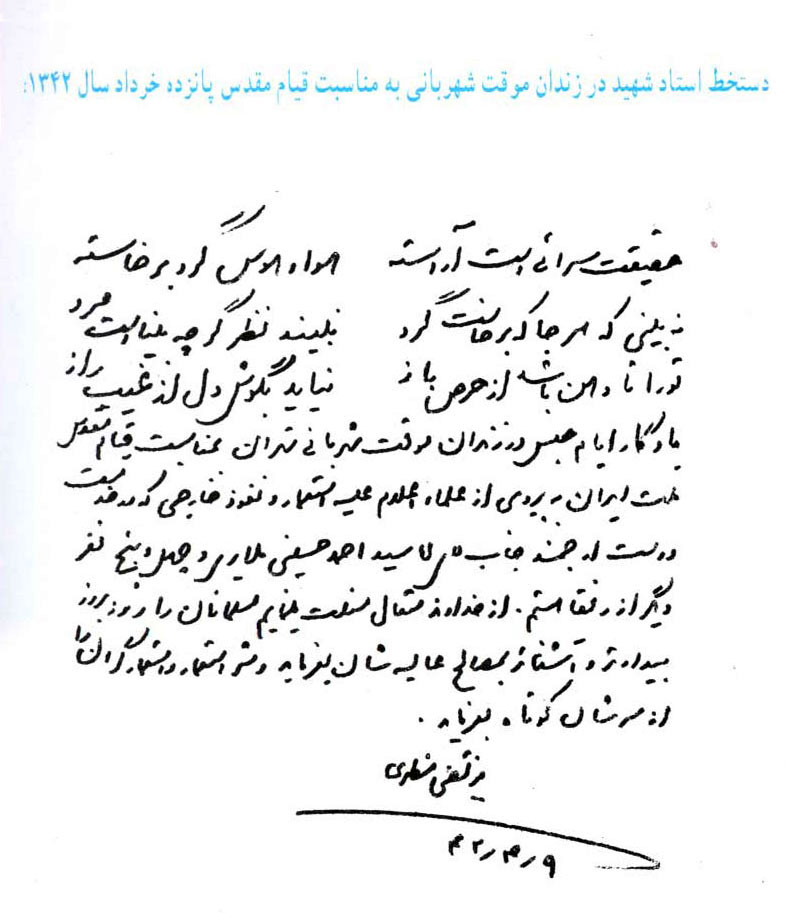 دستخط استاد شهید در زندان موقت شهربانی به مناسبت قیام مقدس پانزده خرداد سال ۱۳۴۲:
حقیقت سرائی است آراسته هوا و هوس گرد برخاسته
نه بینی که هر جا که برخاست گرد نبیند نظر گرچه بیناست مرد
تو را تا دهن باشد از حرص باز نیاید بگوش دل از غیب راز
یادگار ایام حبس در زندان موقت شهربانی تهران بمناسبت قیام مقدس
ملت ایران به پیروی از علماء اعلام علیه استعمار و نفوذ خارجی که در خدمت
دوست ارجمند جناب آقای سید احمد حسینی و چهل و پنج نفر
دیگر از رفقا هستم. از خداوند متعال مسئلت مینمایم مسلمانان را روز بروز
بیدارتر و آشناتر بمصالح عالیه شان بفرماید و شر استعمار و استعمارگران را
از سرشان کوتاه بفرماید.
مرتضی مطهری
۴۲/۳/۹